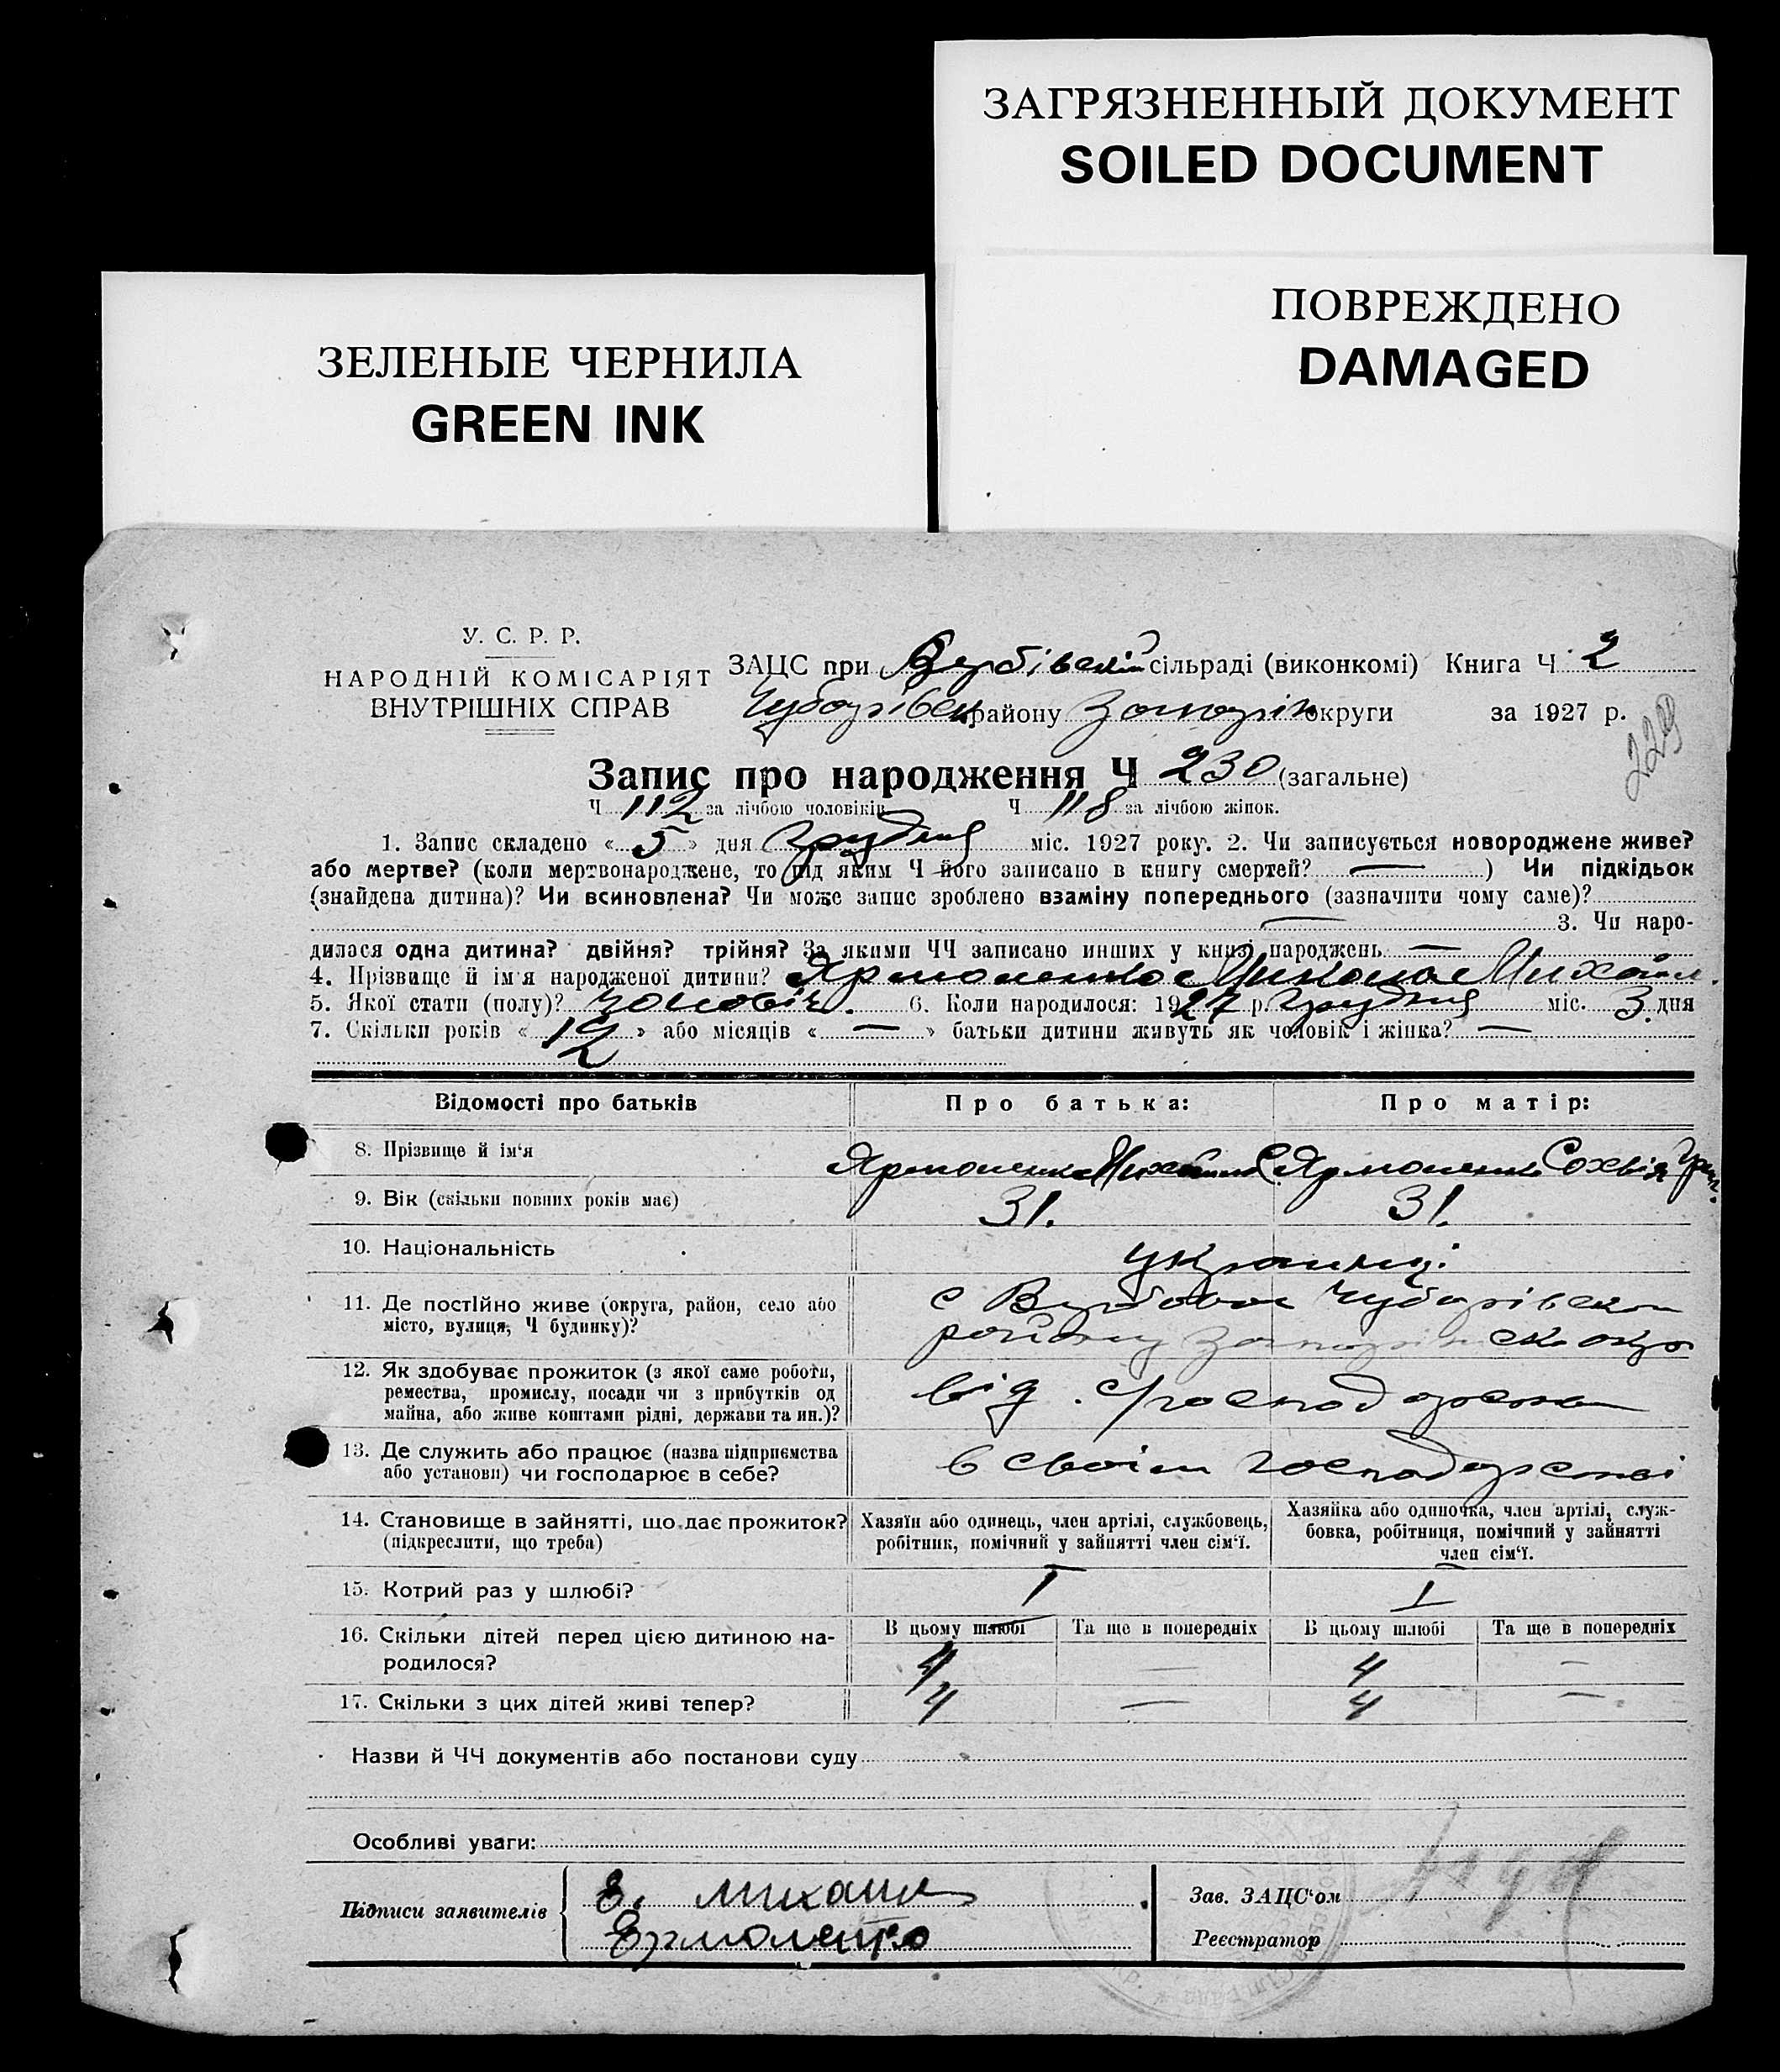 ЗАГРЯЗНЕННЫЙ ДОКУМЕНТ
SOILED DOCUMENT
ПОВРЕЖДЕНО
DAMAGED
ЗЕЛЕНЫЕ ЧЕРНИЛА
GREEN INK
У. С. Р. Р.
НАРОДНІЙ КОМІСАРІЯТ
ВНУТРІШНІХ СПРАВ
ЗАЦС при Вербівській сільраді (виконкомі) Книга Ч 2
Чубарівськ району Запоріж округи за 1927 р.
229
Запис про народження Ч 230 (загальне)
Ч 112 за лічбою чоловіків Ч 118 за лічбою жінок.
1. Запис складено « 5 » дня Грудня міс. 1927 року. 2. Чи записується новороджене живе?
або мертве? (коли мертвонароджене, то під яким Ч його записано в книгу смертей? — ) Чи підкідьок
(знайдена дитина)? Чи всиновлена? Чи може запис зроблено взаміну попереднього (зазначити чому саме)?
— 3. Чи наро-
дилася одна дитина? двійня? трійня? За якими ЧЧ записано инших у книзі народжень —
4. Прізвище й ім'я народженої дитини? Ярмоленко Микола Михайл.
5. Якої стати (полу)? чоловіч. 6. Коли народилося: 1927 р. грудня міс. 3 дня
7. Скільки років « 12 » або місяців « — » батьки дитини живуть як чоловік і жінка? —
Відомості про батьків Про батька: Про матір:
8. Прізвище й ім'я Ярмоленко Михайло С. Ярмоленко Сохвія Григ.
9. Вік (скільки повних років має) 31. 31.
10. Національність українці
11. Де постійно живе (округа, район, село або
місто, вулиця, Ч будинку)?
с Вербова Чубарівськ
району Запоріжск окр
12. Як здобуває прожиток (з якої саме роботи,
ремества, промислу, посади чи з прибутків од
майна, або живе коштами рідні, держави та ин.)?
від господарства
13. Де служить або працює (назва підприємства
або установи) чи господарює в себе?
в своїм господарстві
14. Становище в зайнятті, що дає прожиток?
(підкреслити, що треба)
Хазяїн або одинець, член артілі, службовець,
робітник, помічний у зайнятті член сім'ї.
Хазяйка або одиночка, член артілі, служ-
бовка, робітниця, помічний у зайнятті
член сім'ї.
15. Котрий раз у шлюбі? I I
16. Скільки дітей перед цією дитиною на-
родилося?
В цьому шлюбі Та ще в попередніх В цьому шлюбі Та ще в попередніх
4 — 4 —
17. Скільки з цих дітей живі тепер? 4 — 4 —
Назви й ЧЧ документів або постанови суду
Особливі уваги:
Підписи заявителів
Е. михаил
Ермоленко
Зав. ЗАЦС'ом
Реєстратор